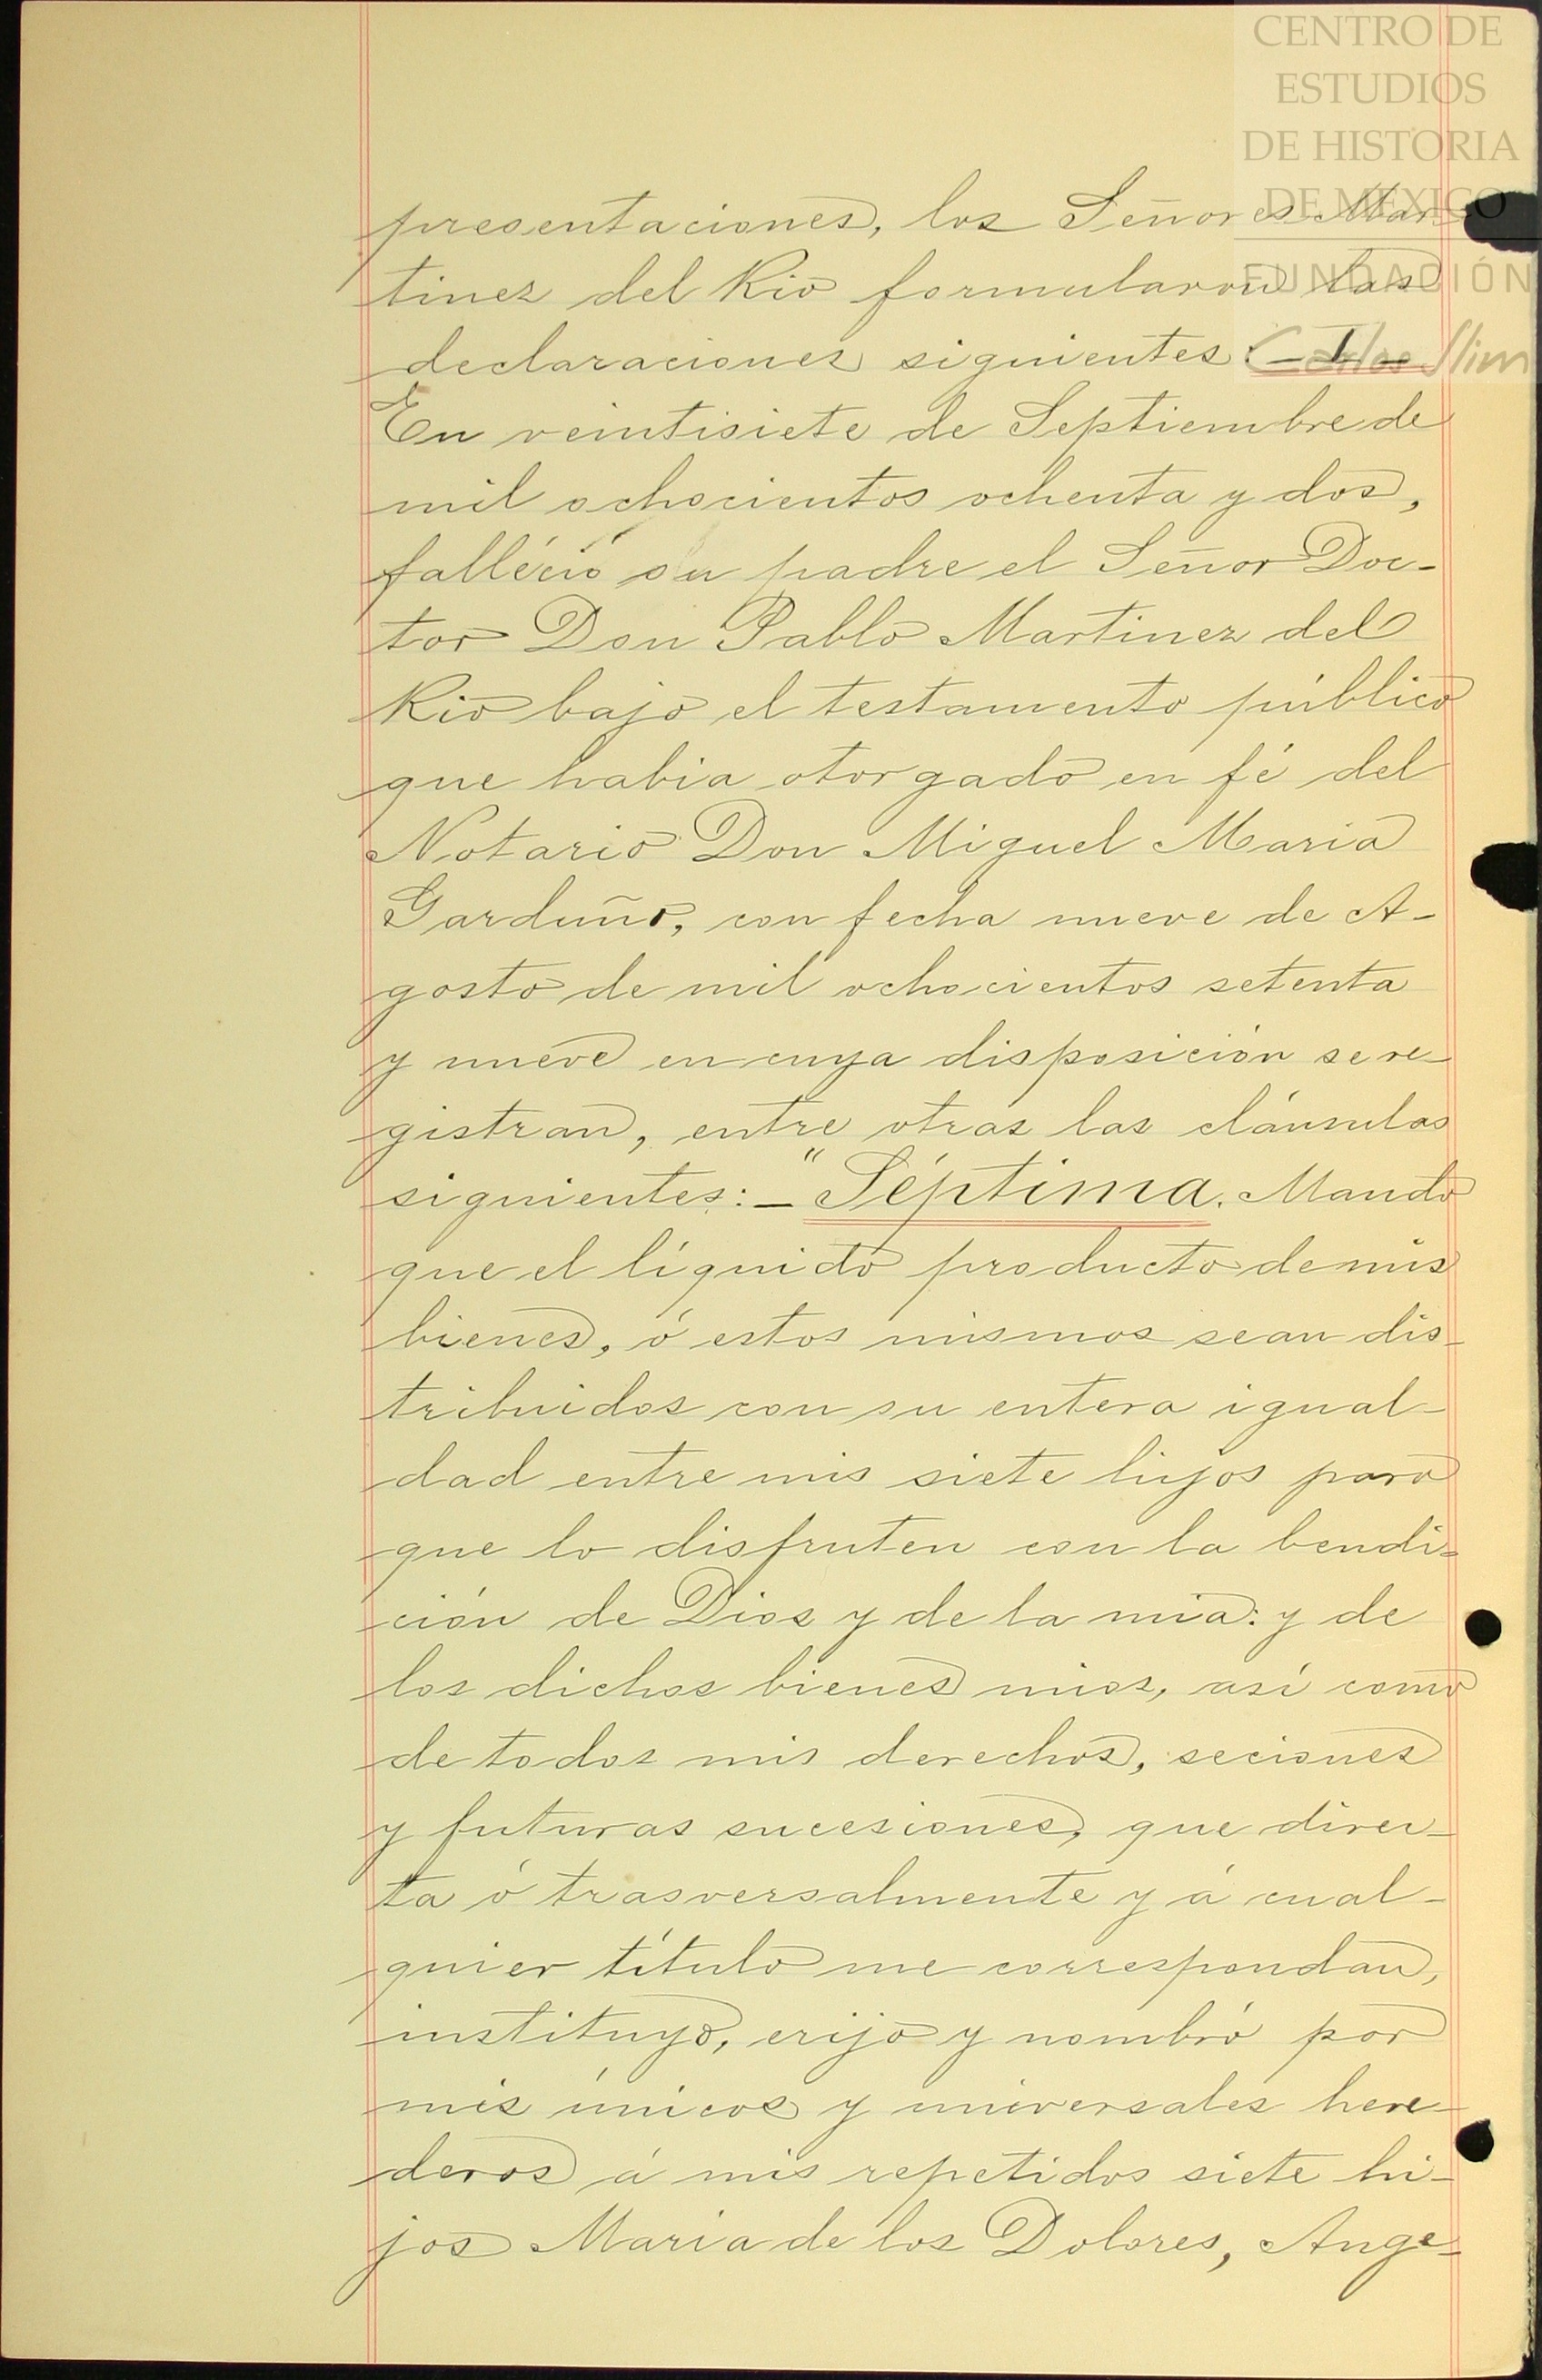 CENTRO DE
ESTUDIOS
DE HISTORIA
DE MÉXICO
FUNDACIÓN
Carlos Slim
presentaciones, los Señores Mar-
tinez del Rio formularon las
declaraciones siguientes: - I -
En veintisiete de Septiembre de
mil ochocientos ochenta y dos,
falléció su padre el Señor Doc-
tor Don Pablo Martinez del
Rio bajo el testamento público
que habia otorgado en fé del
Notario Don Miguel Maria
Garduño, con fecha nueve de A-
gosto de mil ochocientos setenta
y nueve en cuya disposición se re-
gistran, entre otras las cláusulas
siguientes: - "Séptima. Mando
que el líquido producto de mis
bienes, ó estos mismos sean dis-
tribuidos con su entera igual-
dad entre mis siete hijos para
que lo disfruten con la bendi-
ción de Dios y de la mia: y de
los dichos bienes mios, así como
de todos mis derechos, seciones
y futuras sucesiones, que direc-
ta ó trasversalmente y á cual-
quier título me correspondan,
instituyo, erijo y nombró por
mis únicos y universales here-
deros á mis repetidos siete hi-
jos Maria de los Dolores, Ange-